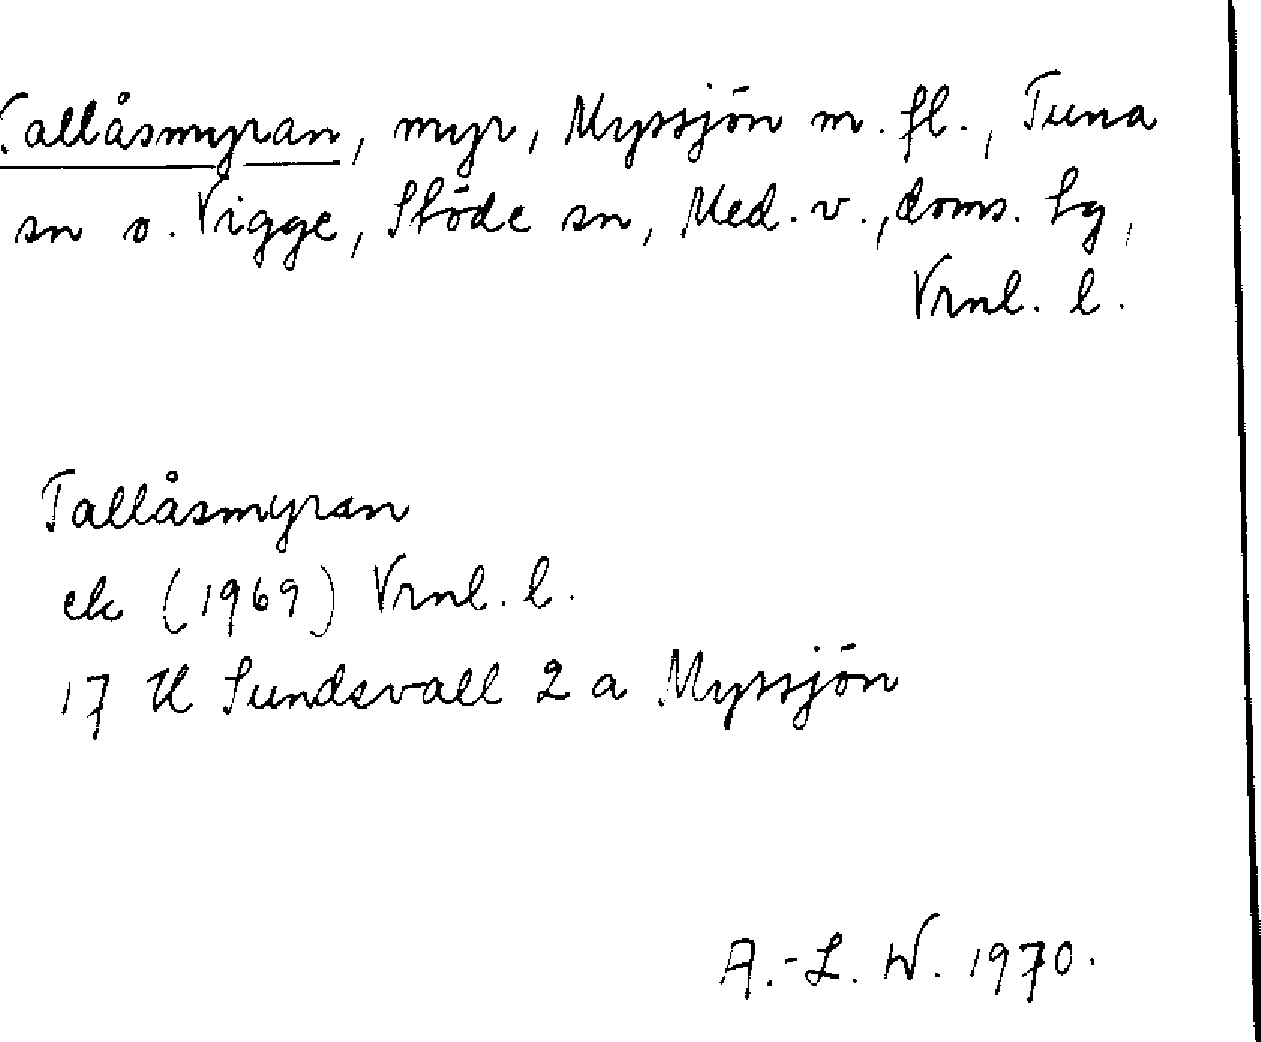 Tallåsmyran, myr, Myssjön m. fl., Tuna
sn o. Vigge, Stöde sn, Med. v., doms. lg,
Vrnl. l.
Tallåsmyran
ek (1969) Vrnl. l.
17 H Sundsvall 2 a Myssjön
A.-L. W. 1970.